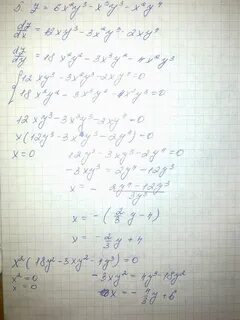 5. Z = 6x²y³ - x³y³ - x²y⁴
dz/dx = 12xy³ - 3x²y³ - 2xy⁴
dz/dy = 18x²y² - 3x³y² - 4x²y³
{ 12xy³ - 3x²y³ - 2xy⁴ = 0
18x²y² - 3x³y² - 4x²y³ = 0
12xy³ - 3x²y³ - 2xy⁴ = 0
x(12y³ - 3xy³ - 2y⁴) = 0
x = 0 12y³ - 3xy³ - 2y⁴ = 0
-3xy³ = 2y⁴ - 12y³
x = - (2y⁴ - 12y³)/3y³
x = - (2/3 y - 4)
x = - 2/3 y + 4
x²(18y² - 3xy² - 4y³) = 0
x² = 0 -3xy² = 4y³ - 18y²
x = 0 x = - 4/3 y + 6